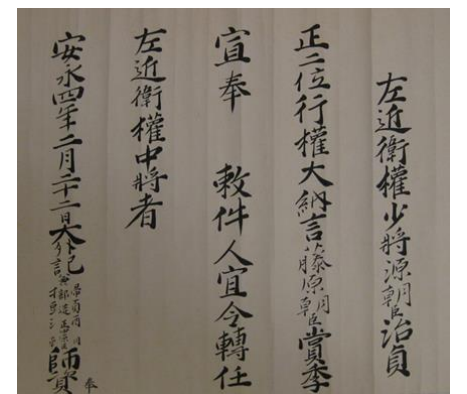 左近衛權少將源朝臣治貞
正二位行權大納言藤原朝臣賞季
宣奉 敕件人宜令轉任
左近衛權中將者
安永四年二月二十二日大外記 師資奉